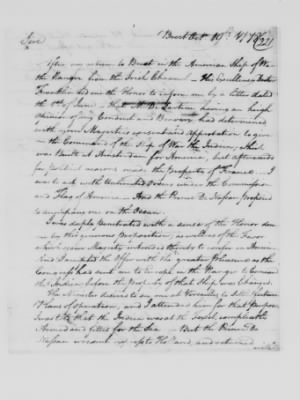 Sire
Brest Oct 19th 1778
221
After my return to Brest in the American Ship of War
the Ranger from the Irish Channel — His Excellency Doctor
Franklin did me the Honor to inform me by a letter dated
the 1st of June — that M. De Sartine having an high
opinion of my Conduct and Bravery had determined
with your Majesty's consent and approbation to give
me the Command of the Ship of War the Indien, which
was Built at Amsterdam for America, but afterwards
for political reasons made the property of France — I
was to act with Unlimited Orders under the Commission
and Flag of America — And the Prince De Nassau proposed
to accompany me on the Ocean.
I was deeply penetrated with a sense of the Honor done
me by this generous Proposition, as well as of the Favor
which your Majesty intended thereby to confer on America
And I accepted the Offer with the greater pleasure as the
Congress had sent me to Europe in the Ranger to Command
the Indien before the property of that Ship was Changed.
The Minister desired to see me at Versailles to settle future
Plans of operation, and I attended him for that purpose
I was told that the Indien was at the Texel completely
Armed and fitted for the Sea — But the Prince De
Nassau was sent express to Holland, and returned
with